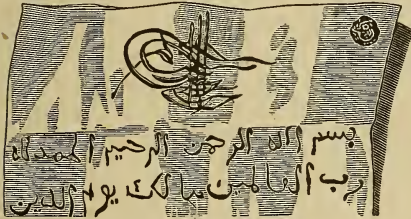 بسم الله الرحمن الرحيم الحمد لله
رب العالمين مالك يوم الدين